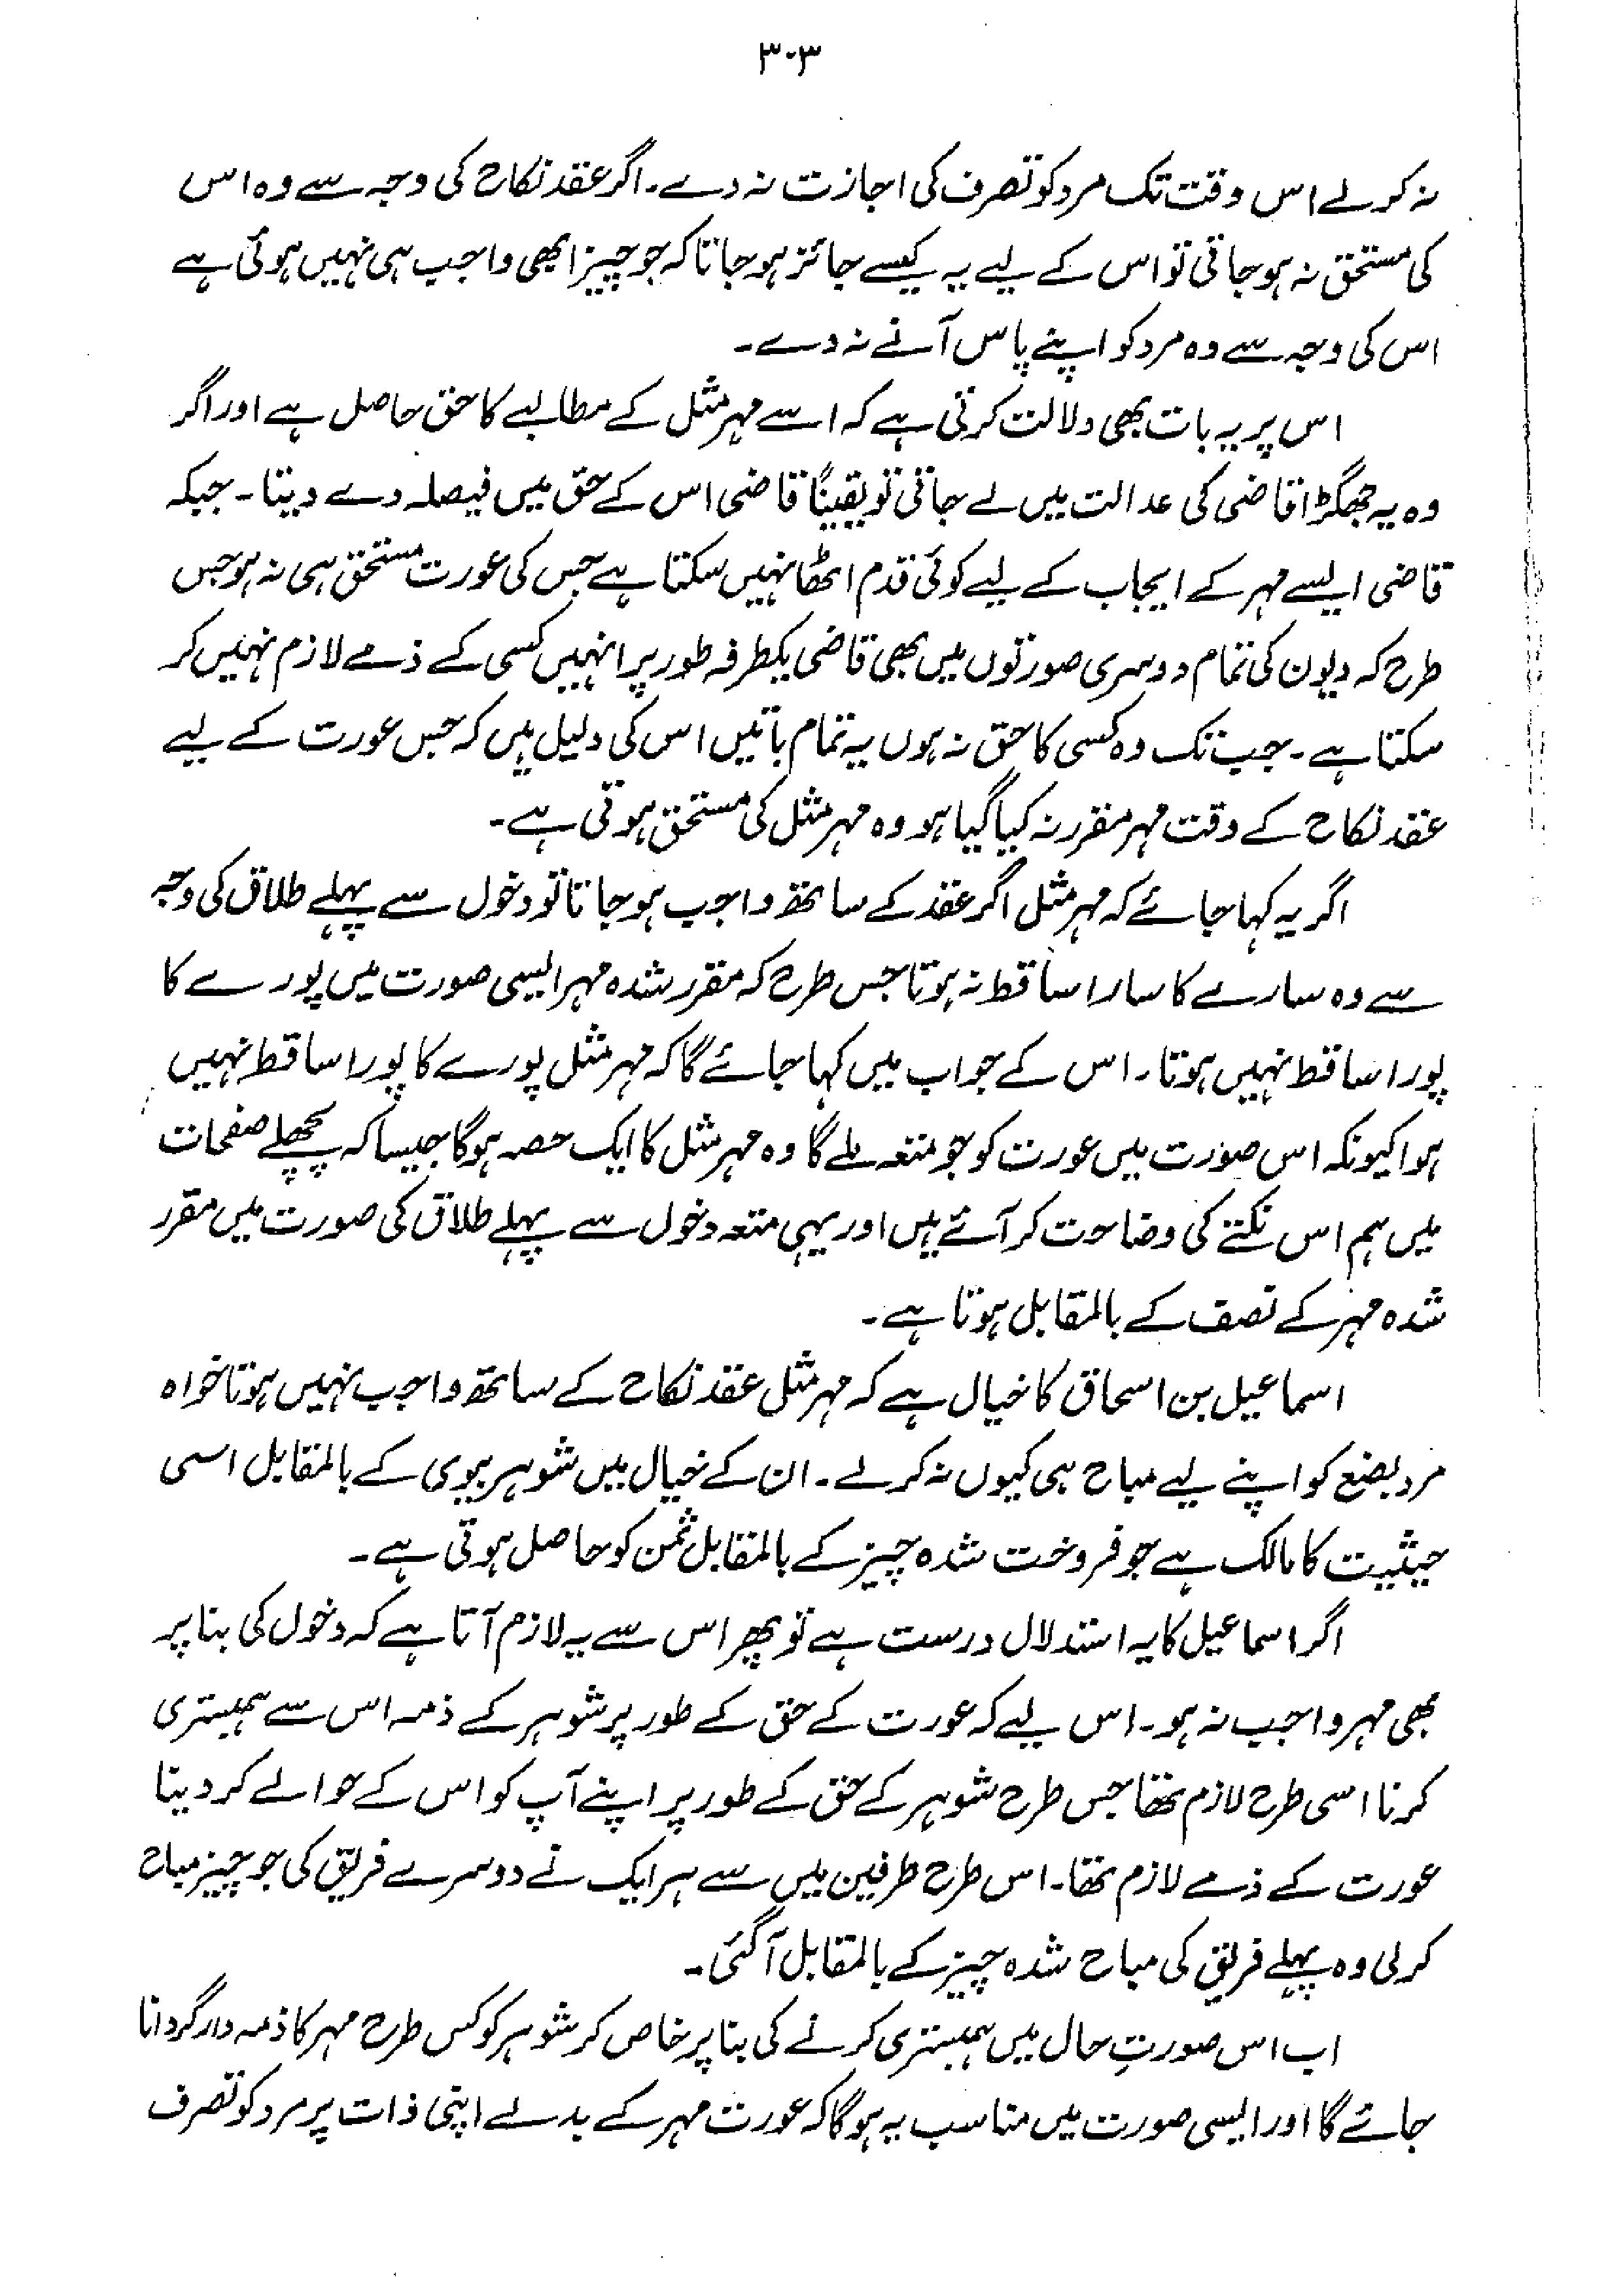 ۳۰۳
نہ کرلے اس وقت تک مرد کو تصرف کی اجازت نہ دے۔ اگر عقد نکاح کی وجہ سے وہ اس
کی مستحق نہ ہوجاتی تو اس کے لیے یہ کیسے جائز ہوجاتا کہ جو چیز ابھی واجب ہی نہیں ہوئی ہے
اس کی وجہ سے وہ مرد کو اپنے پاس آنے نہ دے۔
اس پر یہ بات بھی دلالت کرتی ہے کہ اسے مہر مثل کے مطالبے کا حق حاصل ہے اور اگر
وہ یہ جھگڑا قاضی کی عدالت میں لے جاتی تو یقیناً قاضی اس کے حق میں فیصلہ دے دیتا۔ جبکہ
قاضی ایسے مہر کے ایجاب کے لیے کوئی قدم اٹھا نہیں سکتا ہے جس کی عورت مستحق ہی نہ ہو جس
طرح کہ دیون کی تمام دوسری صورتوں میں بھی قاضی یکطرفہ طور پر انہیں کسی کے ذمے لازم نہیں کر
سکتا ہے۔ جب تک وہ کسی کا حق نہ ہوں یہ تمام باتیں اس کی دلیل ہیں کہ جس عورت کے لیے
عقد نکاح کے وقت مہر مقرر نہ کیا گیا ہو وہ مہر مثل کی مستحق ہوتی ہے۔
اگر یہ کہا جائے کہ مہر مثل اگر عقد کے ساتھ واجب ہوجاتا تو دخول سے پہلے طلاق کی وجہ
سے وہ سارے کا سارا ساقط نہ ہوتا جس طرح کہ مقرر شدہ مہر ایسی صورت میں پورے کا
پورا ساقط نہیں ہوتا۔ اس کے جواب میں کہا جائے گا کہ مہر مثل پورے کا پورا ساقط نہیں
ہوا کیونکہ اس صورت میں عورت کو جو متعہ ملے گا وہ مہر مثل کا ایک حصہ ہوگا جیسا کہ پچھلے صفحات
میں ہم اس نکتے کی وضاحت کر آئے ہیں اور یہی متعہ دخول سے پہلے طلاق کی صورت میں مقرر
شدہ مہر کے نصف کے بالمقابل ہوتا ہے۔
اسماعیل بن اسحاق کا خیال ہے کہ مہر مثل عقد نکاح کے ساتھ واجب نہیں ہوتا خواہ
مرد بضع کو اپنے لیے مباح ہی کیوں نہ کرلے۔ ان کے خیال میں شوہر بیوی کے بالمقابل اسی
حیثیت کا مالک ہے جو فروخت شدہ چیز کے بالمقابل ثمن کو حاصل ہوتی ہے۔
اگر اسماعیل کا یہ استدلال درست ہے تو پھر اس سے یہ لازم آتا ہے کہ دخول کی بنا پر
بھی مہر واجب نہ ہو۔ اس لیے کہ عورت کے حق کے طور پر شوہر کے ذمہ اس سے ہمبستری
کرنا اسی طرح لازم تھا جس طرح شوہر کے حق کے طور پر اپنے آپ کو اس کے حوالے کر دینا
عورت کے ذمے لازم تھا۔ اس طرح طرفین میں سے ہر ایک نے دوسرے فریق کی جو چیز مباح
کرلی وہ پہلے فریق کی مباح شدہ چیز کے بالمقابل آگئی۔
اب اس صورتِ حال میں ہمبستری کرنے کی بنا پر خاص کر شوہر کو کس طرح مہر کا ذمہ دار گردانا
جائے گا اور ایسی صورت میں مناسب یہ ہوگا کہ عورت مہر کے بدلے اپنی ذات پر مرد کو تصرف